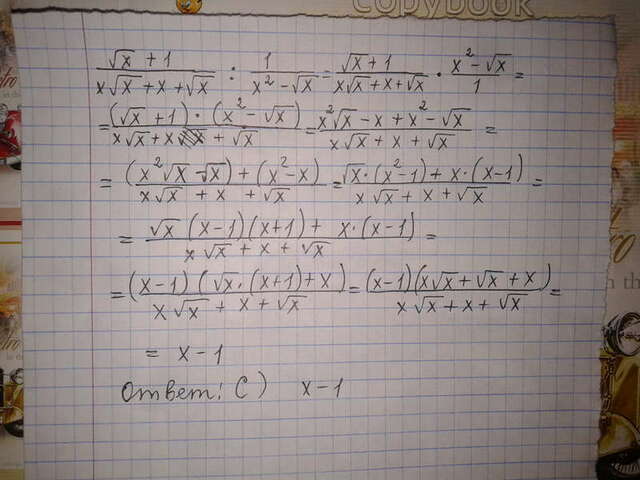 copybook
(√x + 1)/(x√x + x + √x) : 1/(x² - √x) = (√x + 1)/(x√x + x + √x) · (x² - √x)/1 =
= ((√x + 1) · (x² - √x))/(x√x + x + √x) = (x²√x - x + x² - √x)/(x√x + x + √x) =
= ((x²√x √x) + (x² - x))/(x√x + x + √x) = (√x · (x² - 1) + x · (x - 1))/(x√x + x + √x) =
= (√x (x - 1)(x + 1) + x · (x - 1))/(x√x + x + √x) =
= ((x - 1) (√x · (x + 1) + x))/(x√x + x + √x) = ((x - 1)(x√x + √x + x))/(x√x + x + √x) =
= x - 1
Ответ: C) x - 1